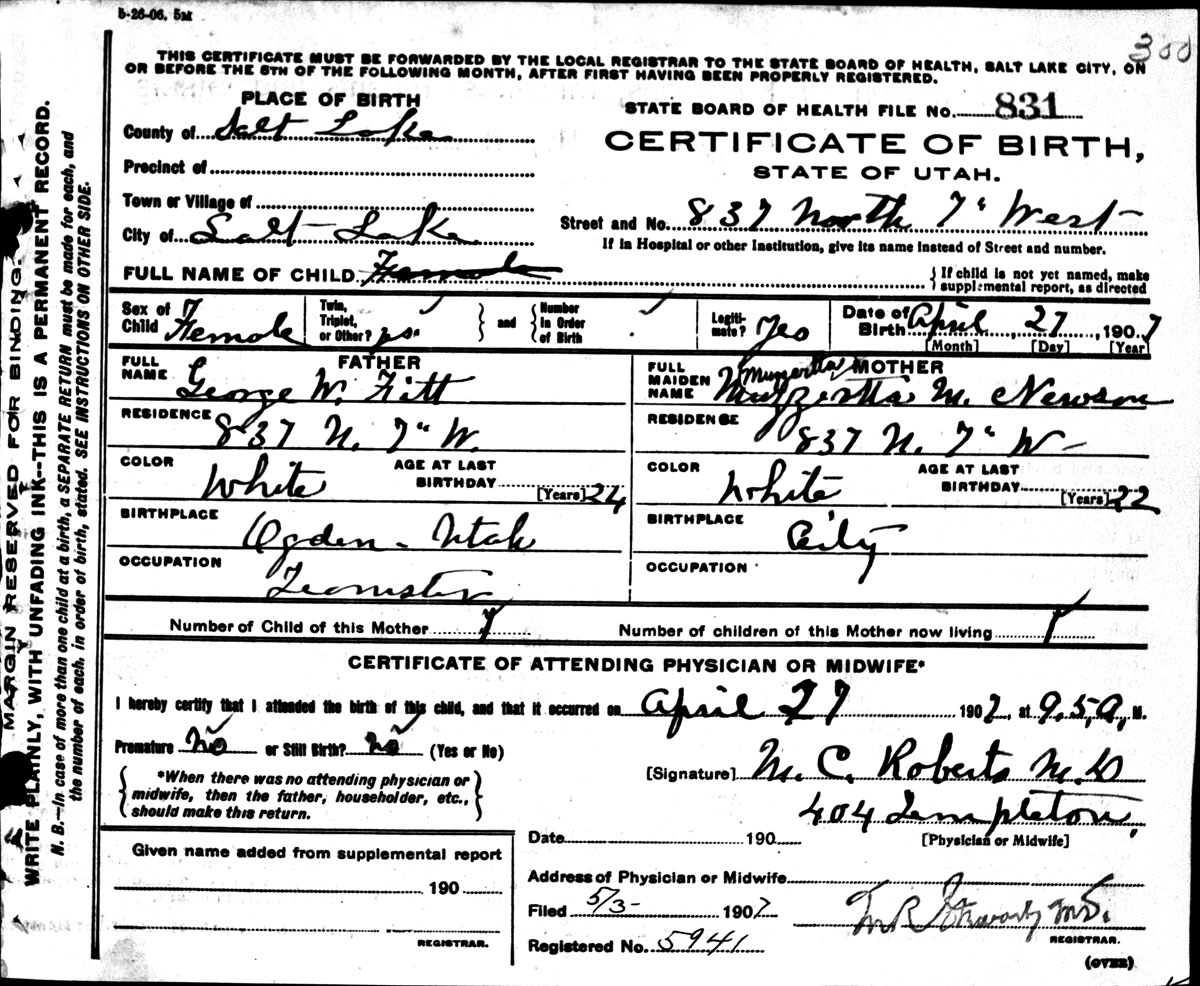 5-26-06. 5M
300
THIS CERTIFICATE MUST BE FORWARDED BY THE LOCAL REGISTRAR TO THE STATE BOARD OF HEALTH, SALT LAKE CITY, ON
OR BEFORE THE 5TH OF THE FOLLOWING MONTH, AFTER FIRST HAVING BEEN PROPERLY REGISTERED.
MARGIN RESERVED FOR BINDING.
WRITE PLAINLY, WITH UNFADING INK--THIS IS A PERMANENT RECORD.
N. B.—In case of more than one child at a birth, a SEPARATE RETURN must be made for each, and
the number of each, in order of birth, stated. SEE INSTRUCTIONS ON OTHER SIDE.
PLACE OF BIRTH
County of Salt Lake
Precinct of
Town or Village of
City of Salt Lake
STATE BOARD OF HEALTH FILE NO. 831
CERTIFICATE OF BIRTH,
STATE OF UTAH.
Street and No. 837 North 7" West
If in Hospital or other Institution, give its name instead of Street and number.
FULL NAME OF CHILD Female
If child is not yet named, make
supplemental report, as directed
Sex of Child Female
Twin, Triplet, or Other?
and
Number in Order of Birth
Legitimate? Yes
Date of Birth April 27, 1907
[Month] [Day] [Year]
FATHER
FULL NAME George W. Fitt
RESIDENCE 837 N. 7" W.
COLOR White
AGE AT LAST BIRTHDAY [Years] 24
BIRTHPLACE Ogden - Utah
OCCUPATION Teamster
MOTHER
FULL MAIDEN NAME M. Newson
RESIDENCE 837 N. 7" W
COLOR White
AGE AT LAST BIRTHDAY [Years] 22
BIRTHPLACE City
OCCUPATION
Number of Child of this Mother 1
Number of children of this Mother now living 1
CERTIFICATE OF ATTENDING PHYSICIAN OR MIDWIFE*
I hereby certify that I attended the birth of this child, and that it occurred on April 27 1907, at 9.5 A, M.
Premature No or Still Birth? No (Yes or No)
*When there was no attending physician or
midwife, then the father, householder, etc.,
should make this return.
[Signature] M. C. Roberts M.D
404 Templeton,
Date 190
[Physician or Midwife]
Given name added from supplemental report
190
REGISTRAR.
Address of Physician or Midwife
Filed 5/3- 1907
REGISTRAR.
Registered No. 5941
(OVER)